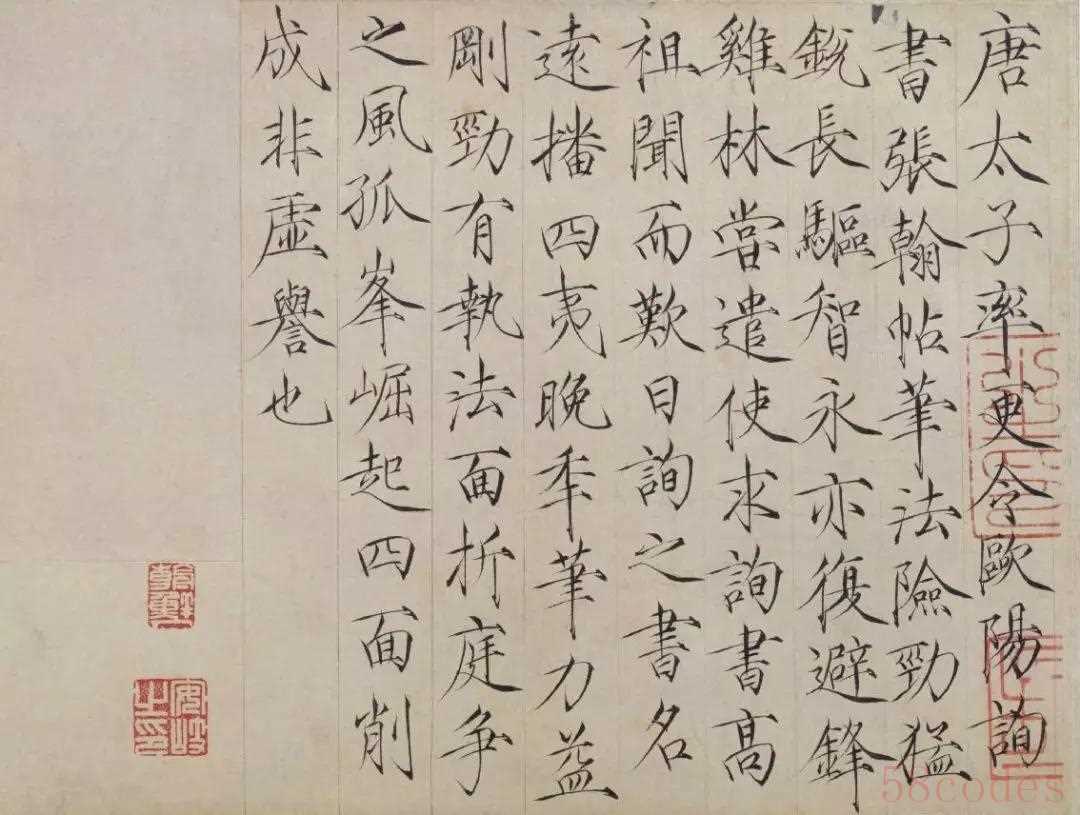 唐太子率更令歐陽詢
書張翰帖筆法險勁猛
銳長驅智永亦復避鋒
雞林嘗遣使求詢書高
祖聞而歎曰詢之書名
遠播四夷晚年筆力益
剛勁有執法面折庭爭
之風孤峯崛起四面削
成非虛譽也
安岐之印
58codes